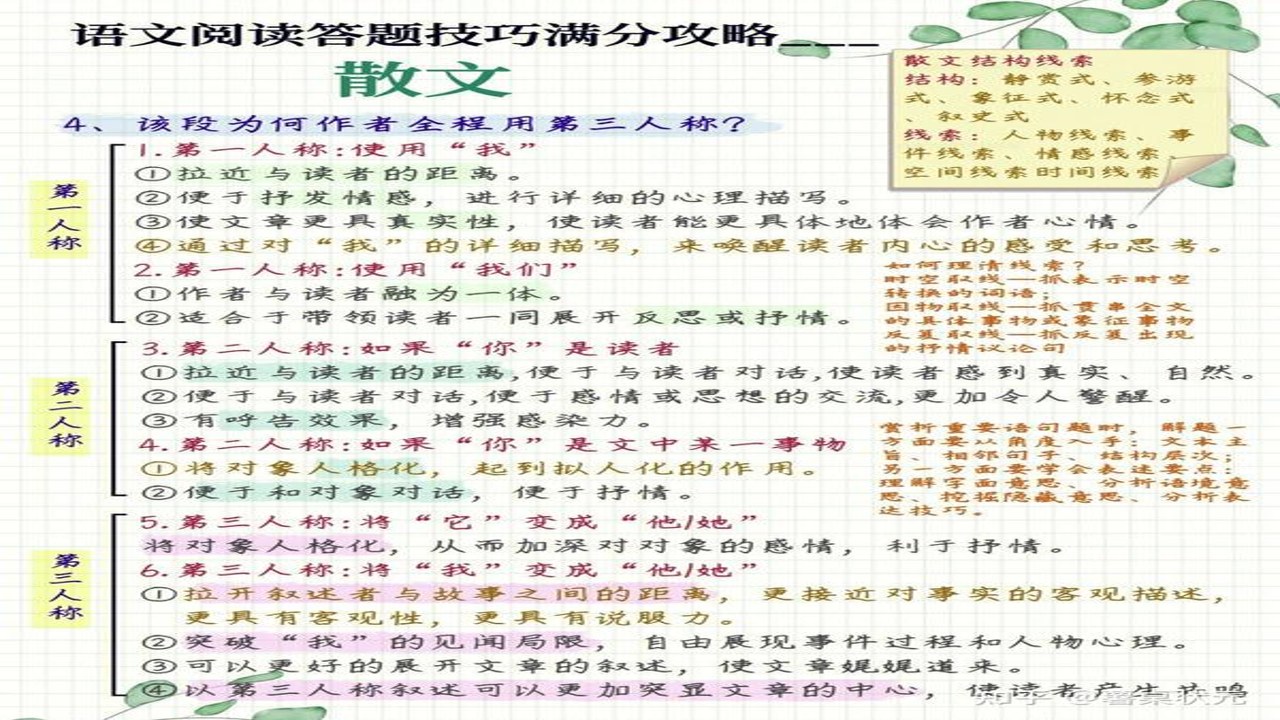 语文阅读答题技巧满分攻略___
散文
4、该段为何作者全程用第三人称?
第一人称
1.第一人称:使用“我”
①拉近与读者的距离。
②便于抒发情感，进行详细的心理描写。
③使文章更具真实性，使读者能更具体地体会作者心情。
④通过对“我”的详细描写，来唤醒读者内心的感受和思考。
2.第一人称:使用“我们”
①作者与读者融为一体。
②适合于带领读者一同展开反思或抒情。
第二人称
3.第二人称:如果“你”是读者
①拉近与读者的距离,便于与读者对话,使读者感到真实、自然。
②便于与读者对话,便于感情或思想的交流,更加令人警醒。
③有呼告效果，增强感染力。
4.第二人称:如果“你”是文中某一事物
①将对象人格化，起到拟人化的作用。
②便于和对象对话，便于抒情。
第三人称
5.第三人称:将“它”变成“他/她”
将对象人格化，从而加深对对象的感情，利于抒情。
6.第三人称:将“我”变成“他/她”
①拉开叙述者与故事之间的距离，更接近对事实的客观描述，
更具有客观性，更具有说服力。
②突破“我”的见闻局限，自由展现事件过程和人物心理。
③可以更好的展开文章的叙述，使文章娓娓道来。
④以第三人称叙述可以更加突显文章的中心，使读者产生共鸣
散文结构线索
结构：静赏式、参游
式、象征式、怀念式
、叙史式
线索：人物线索、事
件线索、情感线索
空间线索时间线索
如何理清线索?
时空取线—抓表示时空
转换的词语;
因物取线—抓贯串全文
的具体事物或象征事物
反复取线—抓反复出现
的抒情议论句
赏析重要语句题时，解题一
方面要以角度入手：文本主
旨、相邻句子、结构层次;
另一方面要学会表述要点:
理解字面意思、分析语境意
思、挖掘隐藏意思、分析表
达技巧。
知乎 @薯条状元